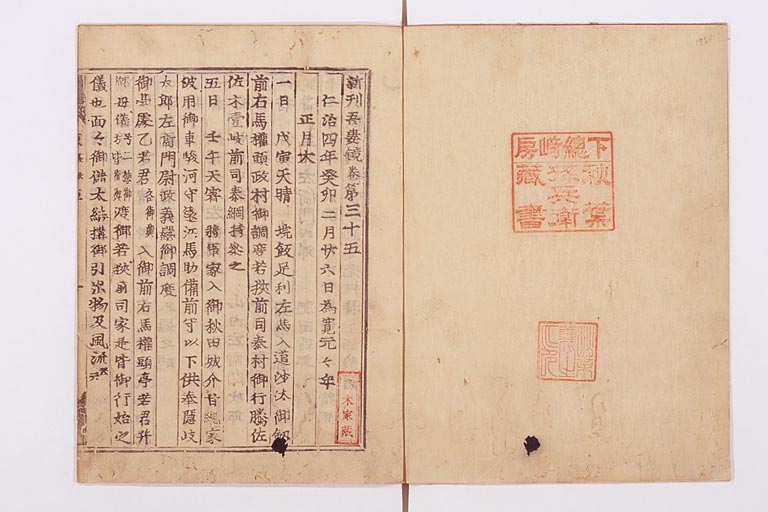 下総崎
秋葉孫兵衛
房蔵書
新刊吾妻鏡巻第三十五
仁治四年癸卯二月廿六日為寛元々年
正月大
一日 戊寅天晴 垸飯足利左馬入道沙汰御剱
前右馬權頭政村御調度若狭前司泰村御行騰佐
佐木壹岐前司泰綱持参之
五日 壬午天霽 将軍家入御秋田城介義景家
被用御車駿河守 馬助備前守以下供奉隠岐
太郎左衛門尉政義懸御調度
御共慶乙若君入御前右馬權頭亭若君并
御母儀 二棟御方 渡御若狭前司家是皆御行始之
儀也面々御儲太結構御引出物及風流云云